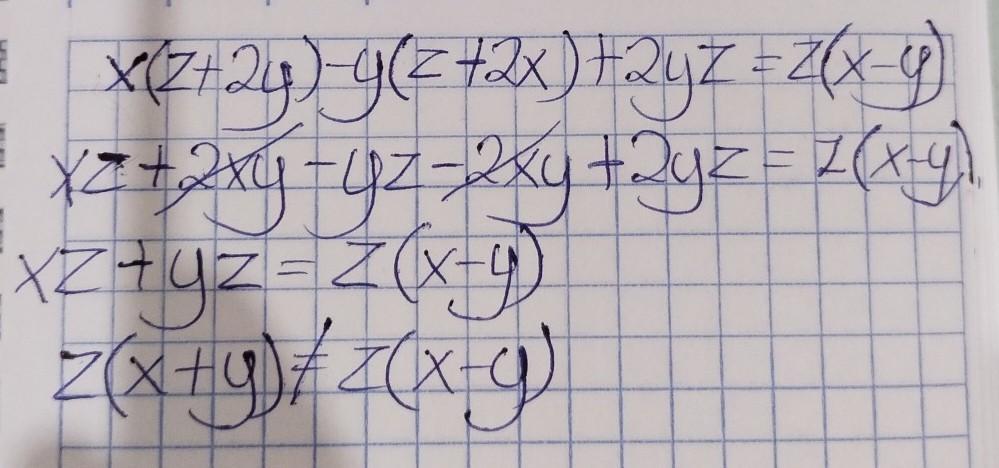 x(z+2y)-y(z+2x)+2yz=z(x-y)
xz+2xy-yz-2xy+2yz=z(x-y).
xz+yz=z(x-y)
z(x+y)≠z(x-y)